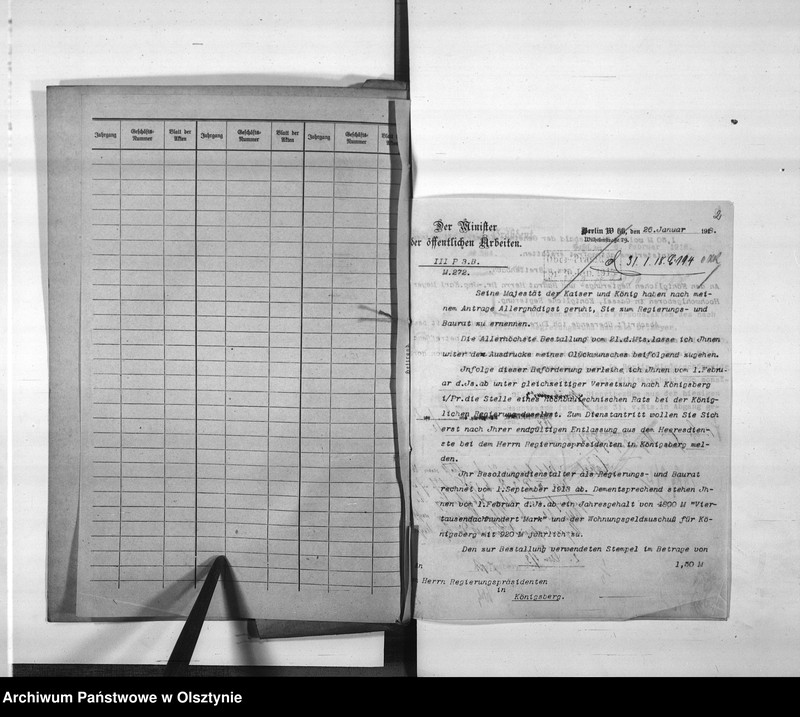 Jahrgang Geschäfts-Nummer Blatt der Akten Jahrgang Geschäfts-Nummer Blatt der Akten Jahrgang Geschäfts-Nummer
2
Der Minister
der öffentlichen Arbeiten.
Berlin W 66, den 26. Januar 1918.
Wilhelmstraße 79.
III P 3.B.
M.272.
Seine Majestät der Kaiser und König haben nach mei-
nem Antrage Allergnädigst geruht, Sie zum Regierungs- und
Baurat zu ernennen.
Die Allerhöchste Bestallung vom 21.d.Mts.lasse ich Jhnen
unter dem Ausdrucke meines Glückwunsches beifolgend zugehen.
Jnfolge dieser Beförderung verleihe ich Jhnen vom 1.Febru-
ar d.Js.ab unter gleichzeitiger Versetzung nach Königsberg
i/Pr.die Stelle eines hochbautechnischen Rats bei der König-
lichen Regierung daselbst. Zum Dienstantritt wollen Sie Sich
erst nach Jhrer endgültigen Entlassung aus dem Heeresdien-
ste bei dem Herrn Regierungspräsidenten in Königsberg mel-
den.
Jhr Besoldungsdienstalter als Regierungs- und Baurat
rechnet vom 1.September 1918 ab. Dementsprechend stehen Jh-
nen vom 1.Februar d.Js.ab ein Jahresgehalt von 4800 M "Vier-
tausendachthundert Mark" und der Wohnungsgeldzuschuß für Kö-
nigsberg mit 920 M jährlich zu.
Den zur Bestallung verwendeten Stempel im Betrage von
1,50 M
Herrn Regierungspräsidenten
in
Königsberg.
Archiwum Państwowe w Olsztynie